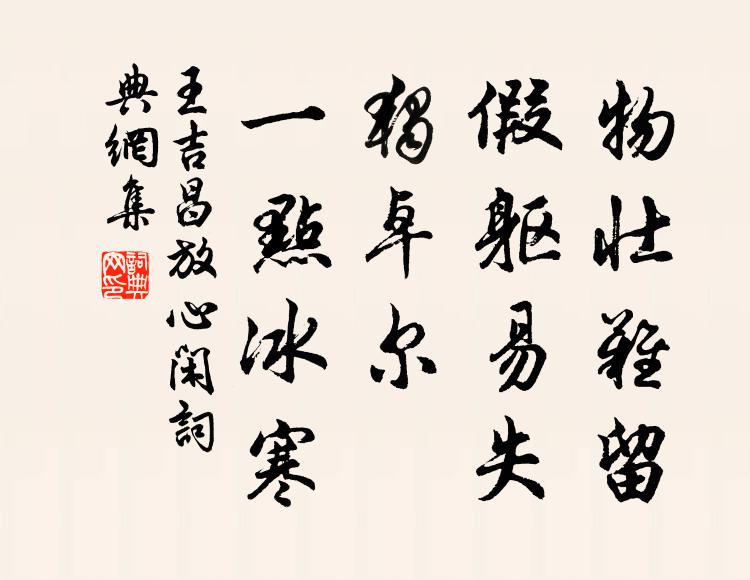 物壮難留
假躯易失
獨卓尔
一點冰寒
王吉昌放心閑詞
典網集
詞典网印